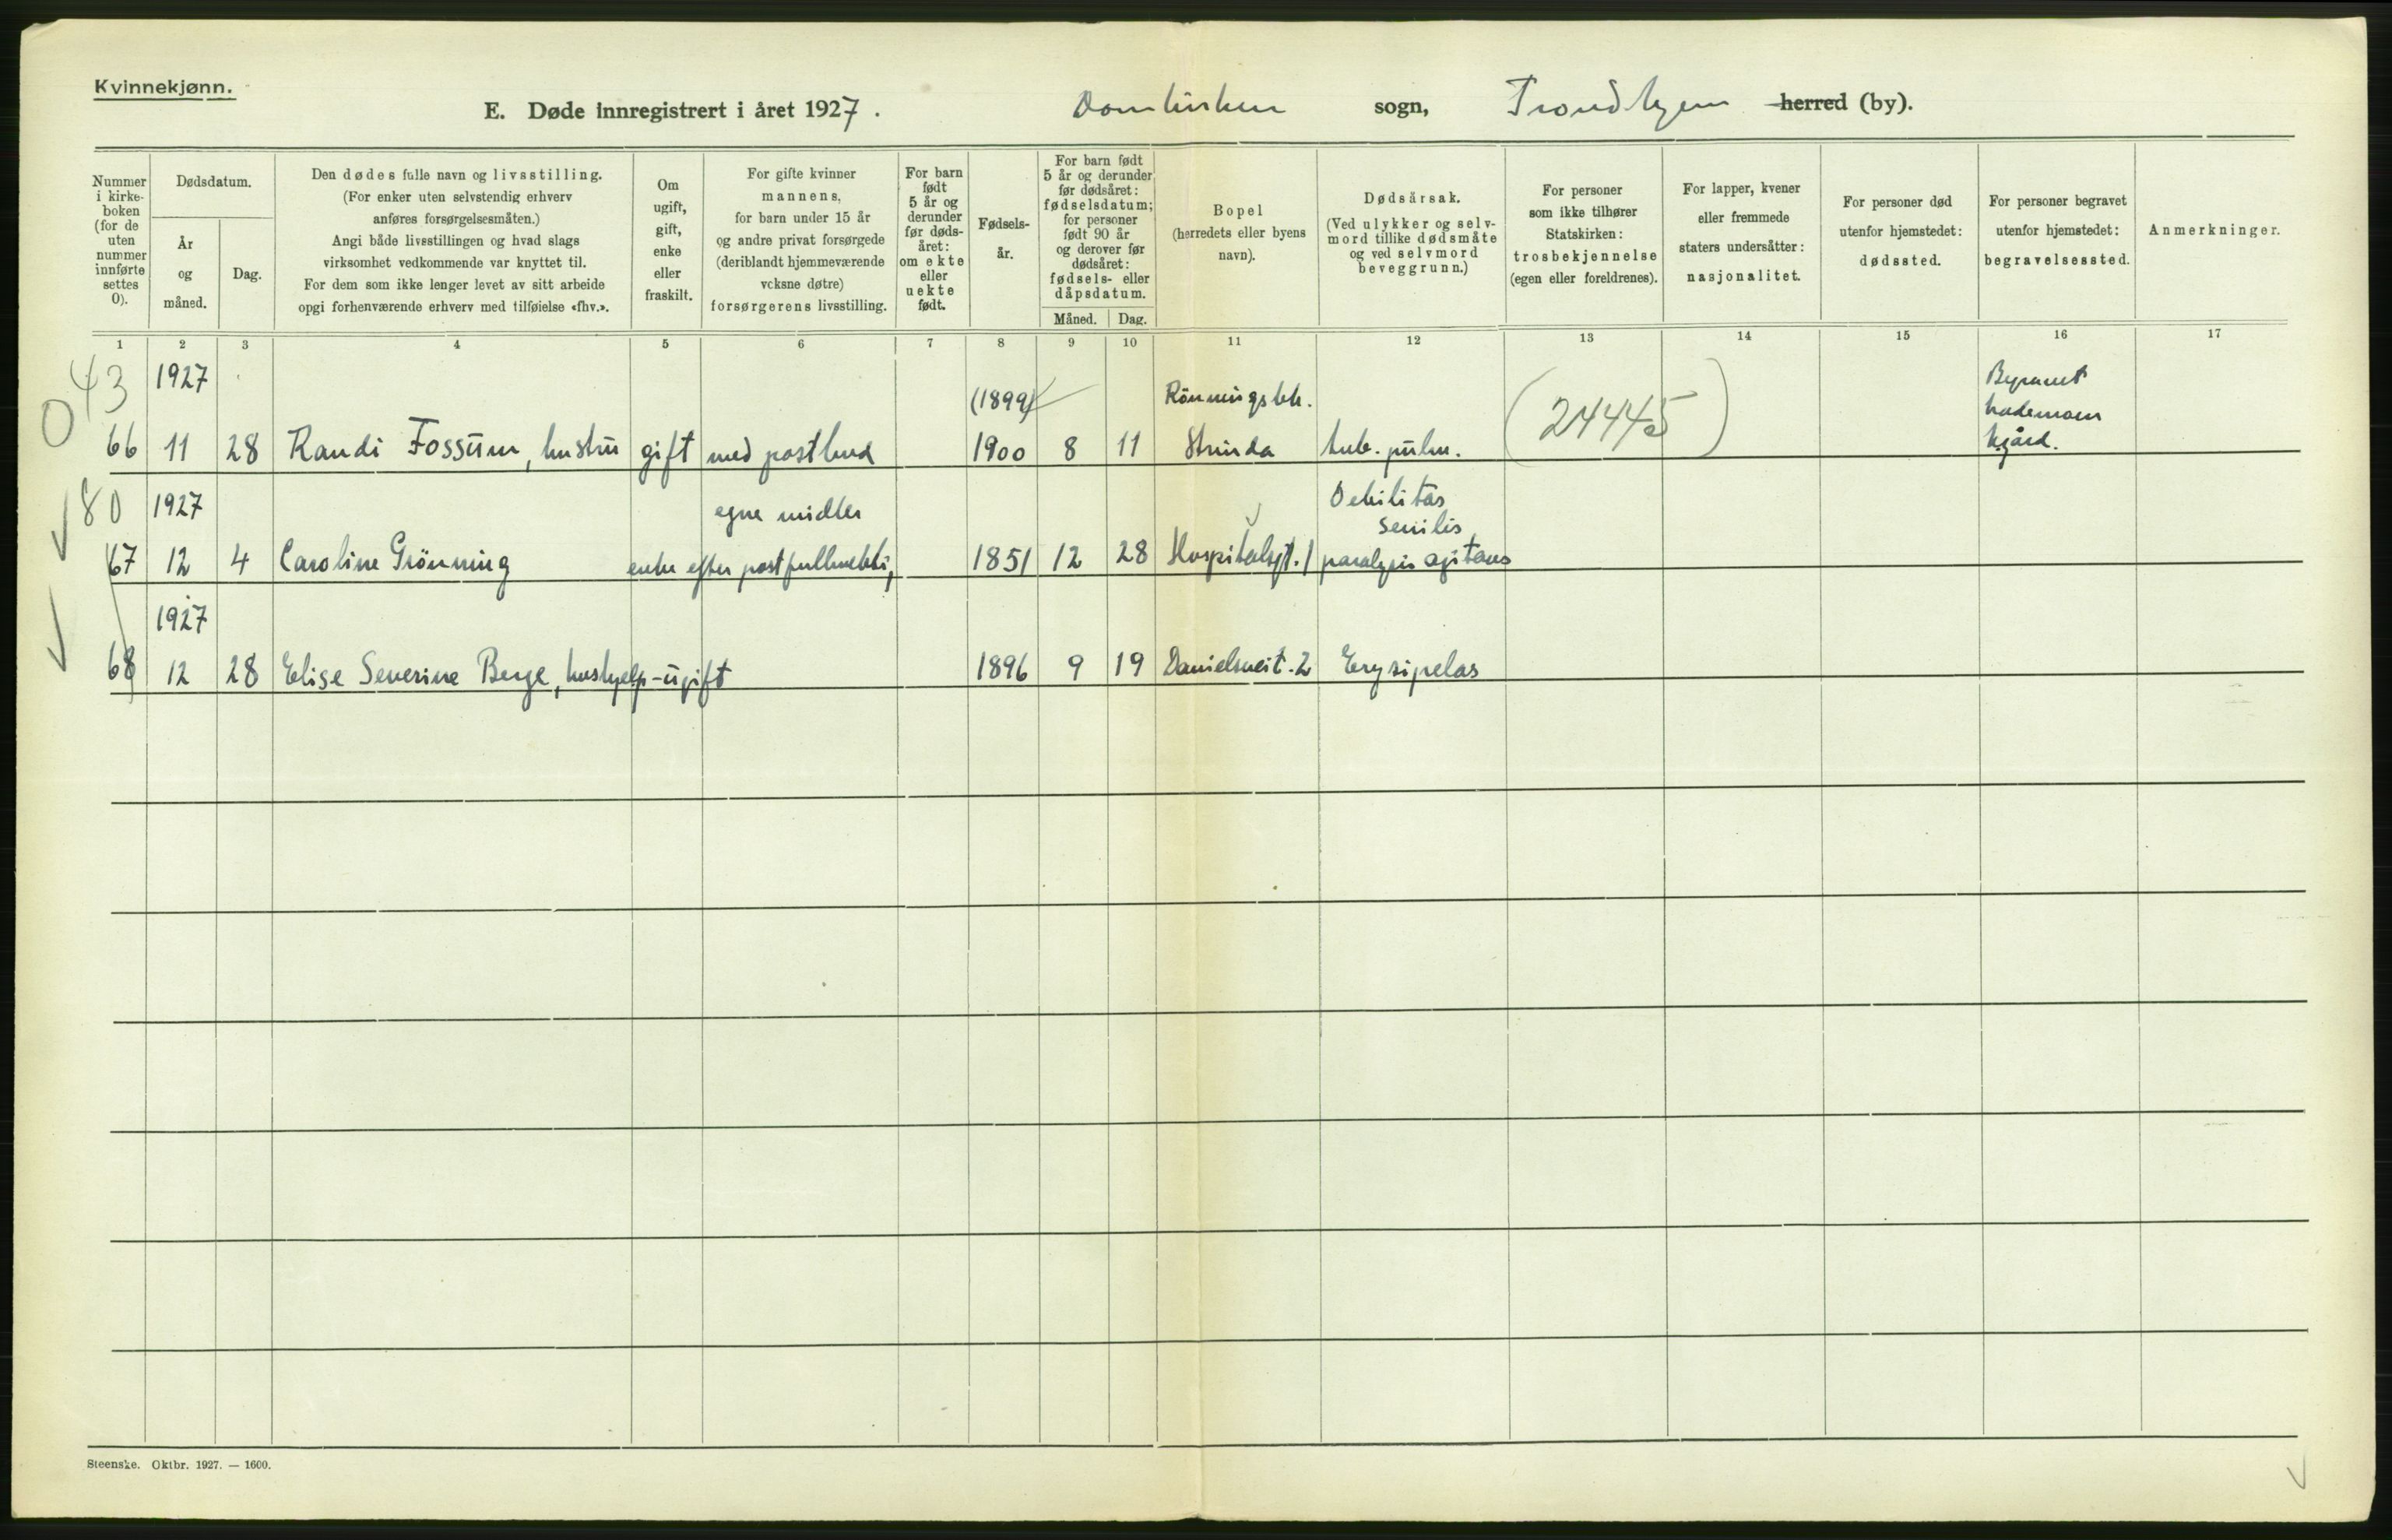 Kvinnekjønn.
E. Døde innregistrert i året 1927. Domkirken sogn, Trondhjem herred (by).
Nummer i kirke-boken (for de uten nummer innførte settes 0).
Dødsdatum.
År og måned.
Dag.
Den dødes fulle navn og livsstilling.
(For enker uten selvstendig erhverv
anføres forsørgelsesmåten.)
Angi både livsstillingen og hvad slags
virksomhet vedkommende var knyttet til.
For dem som ikke lenger levet av sitt arbeide
opgi forhenværende erhverv med tilføielse «fhv.».
Om
ugift,
gift,
enke
eller
fraskilt.
For gifte kvinner
mannens,
for barn under 15 år
og andre privat forsørgede
(deriblandt hjemmeværende
voksne døtre)
forsørgerens livsstilling.
For barn
født
5 år og
derunder
før døds-
året:
om ekte
eller
uekte
født.
Fødsels-
år.
For barn født
5 år og derunder
før dødsåret:
fødselsdatum;
for personer
født 90 år
og derover før
dødsåret:
fødsels- eller
dåpsdatum.
Måned. Dag.
Bopel
(herredets eller byens
navn).
Dødsårsak.
(Ved ulykker og selv-
mord tillike dødsmåte
og ved selvmord
beveggrunn.)
For personer
som ikke tilhører
Statskirken:
trosbekjennelse
(egen eller foreldrenes).
For lapper, kvener
eller fremmede
staters undersåtter:
nasjonalitet.
For personer død
utenfor hjemstedet:
dødssted.
For personer begravet
utenfor hjemstedet:
begravelsessted.
Anmerkninger.
1 2 3 4 5 6 7 8 9 10 11 12 13 14 15 16 17
43 1927 (1899) Rönningsbk. (24445) Byneset
0 hademoen
66 11 28 Randi Fossum, hustru gift med postbud 1900 8 11 Strinda tub. pulm. kgård.
80 1927 egne midler Debilitas
senilis,
67 12 4 Caroline Grönning enke efter postfullmekti, 1851 12 28 Hospitalsgt. 1 paralysis agitans
1927
68 12 28 Elise Severine Berge, hushjelp - ugift 1896 9 19 Danielsveit. 2 Erysipelas
Steenske. Oktbr. 1927. — 1600.